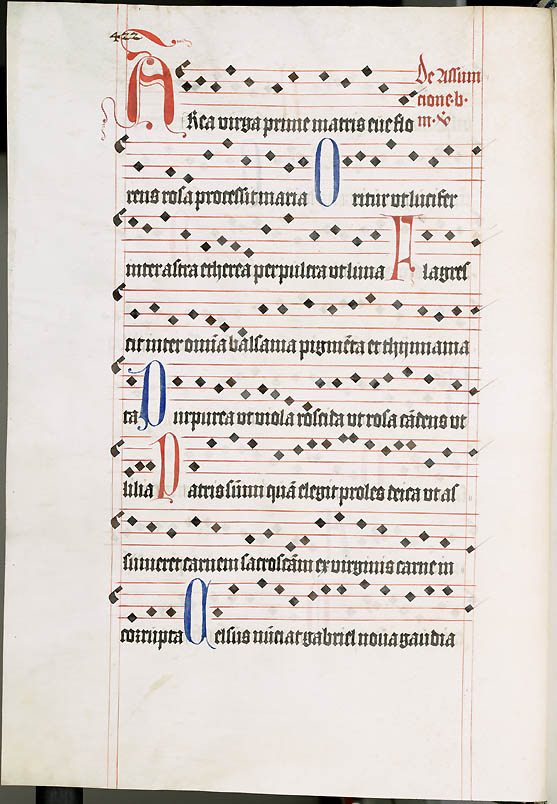 422
De Assum
cione·b·
m·v
ARea virga prime matris eue flo
rens rosa processit maria Oritur vt lucifer
inter astra etherea perpulcra vt luna Flagres
cit inter om̄ia balsama pigmēta et thymiama
ta Purpurea vt viola roscida vt rosa cādens vt
lilia Patris sūmi quā elegit proles deica vt as
sumeret carnem sacroscām ex virginis carne in
corrupta Celsus nūciat gabriel noua gaudia